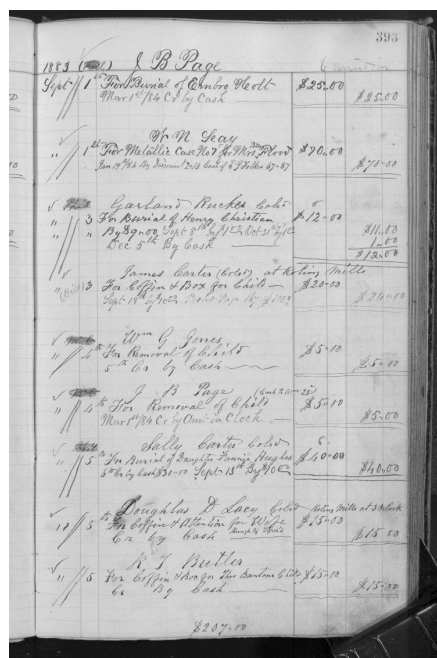 393
1883 J B Page
Sept 1st For Burial of Embro Holt $25.00
Mar 1st/84 Cr by Cash $25.00
W N Seay
" 1st For Metallic Case No 7 for Mrs Flood $70.00
$70.00
Garland Rucker Cold
" 3 For Burial of Henry Christian $12.00
" " By $9.00 Sept 8th $11.00
Dec 5th By Cash 1.00
$12.00
James Carter (Cold) at Roling Mills
" 3 For Coffin & Box for Child $20.00
Sept 18th
Wm G Jones
" 4th For Removal of Child $5.00
5th Cr by Cash $5.00
J B Page
" 4th For Removal of Child $5.00
Mar 1st/84 Cr by Am in Clock $5.00
Sally Carter Cold
" 5th For Burial of Daughter Fannie Hughes $40.00
5th Cr by Cash $30.00 Sept 18th By $10.00 $40.00
Doughlas D Lacy Cold Roling Mills at 3 oclock
" 5th For Coffin & Attention for Wife $15.00
Cr by Cash $15.00
R T Butler
" 5 For Coffin & Box for Child $15.00
Cr By Cash $15.00
$207.00